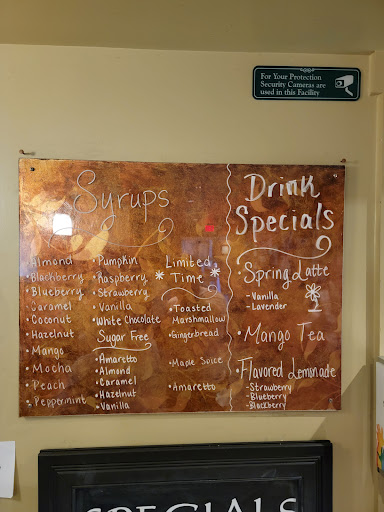 For Your Protection
Security Cameras are
used in this Facility
Syrups
Almond
• Blackberry
• Blueberry
• Caramel
• Coconut
• Hazelnut
• Mango
• Mocha
• Peach
• Peppermint
• Pumpkin
• Raspberry
• Strawberry
• Vanilla
• White Chocolate
Sugar Free
• Amaretto
• Almond
• Caramel
• Hazelnut
• Vanilla
Limited
Time
• Toasted
Marshmallow
• Gingerbread
• Maple Spice
• Amaretto
Drink
Specials
• Spring Latte
- Vanilla
- Lavender
• Mango Tea
• Flavored Lemonade
- Strawberry
- Blueberry
- Blackberry
SPECIALS